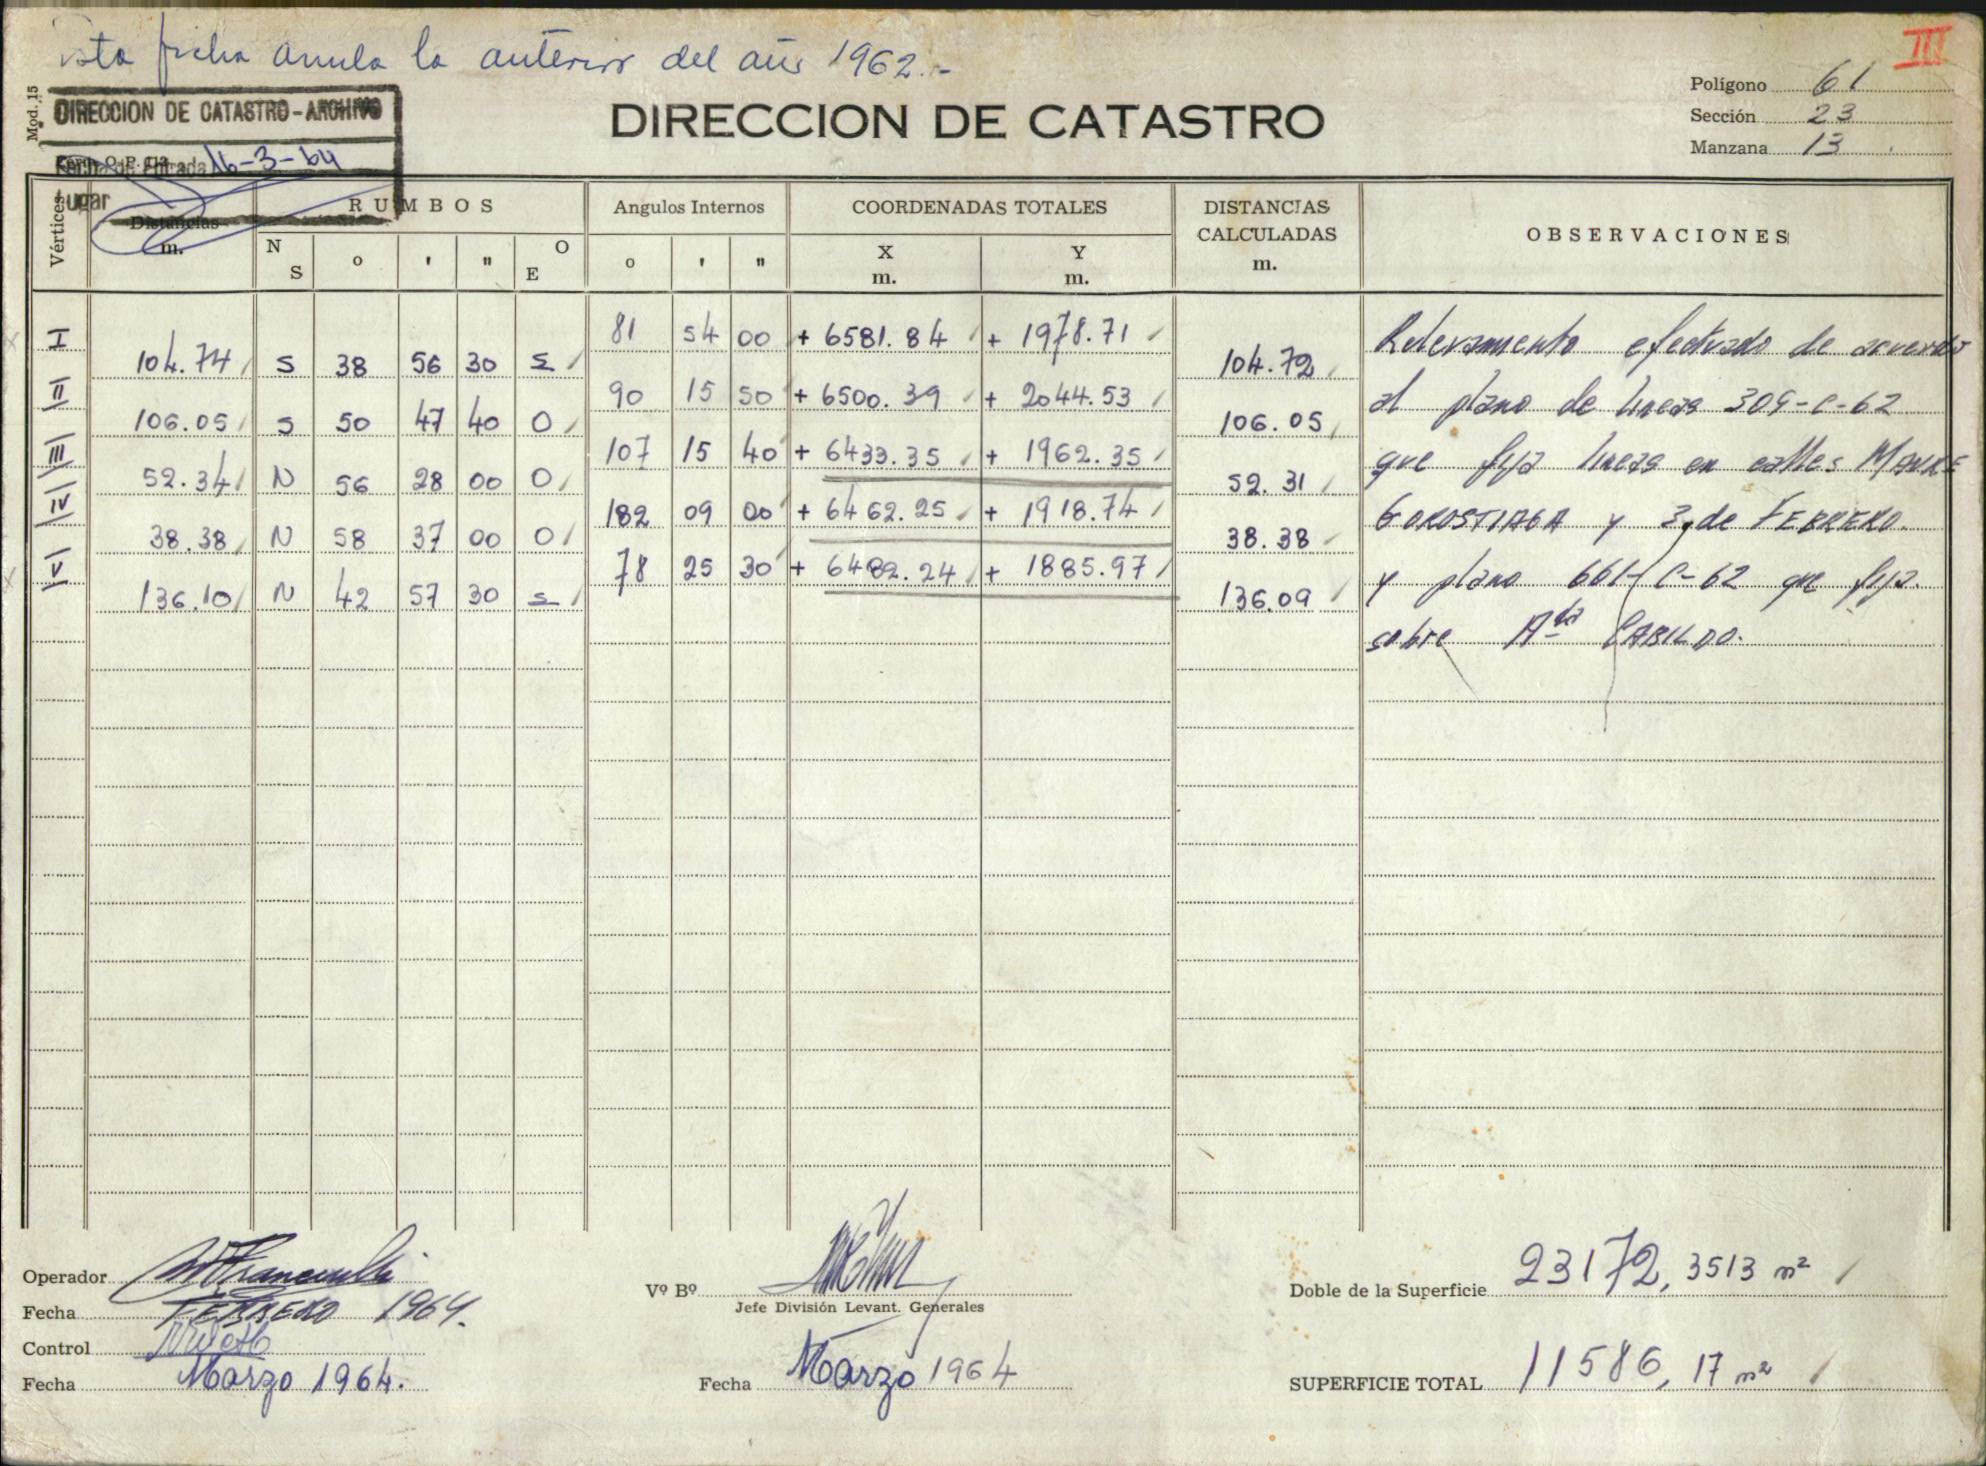 Esta ficha anula la anterior del año 1962.-
III
Mod. 15
DIRECCION DE CATASTRO-ARCHIVO
Fecha de Entrada 16-3-64
Lugar
DIRECCION DE CATASTRO
Polígono 61
Sección 23
Manzana 13
Vértices Distancias m. RUMBOS Angulos Internos COORDENADAS TOTALES DISTANCIAS CALCULADAS m. OBSERVACIONES
N S o ' " O E o ' " X m. Y m.
I 81 54 00 + 6581.84 + 1978.71 Relevamiento efectuado de acuerdo
104.74 S 38 56 30 E 104.72
II 90 15 50 + 6500.39 + 2044.53 al plano de lineas 309-C-62
106.05 S 50 47 40 O 106.05
III 107 15 40 + 6433.35 + 1962.35 que fija lineas en calles MAURE
52.34 N 56 28 00 O 52.31
IV 182 09 00 + 6462.25 + 1918.74 GOROSTIAGA y 3 de FEBRERO
38.38 N 58 37 00 O 38.38
V 78 25 30 + 6482.24 + 1885.97 y plano 661-C-62 que fija
136.10 N 42 57 30 E 136.09
sobre Avda CABILDO.
Operador
Fecha FEBRERO 1964.
Control
Fecha Marzo 1964.
Vº Bº
Jefe División Levant. Generales
Fecha Marzo 1964
Doble de la Superficie 23172,3513 m²
SUPERFICIE TOTAL 11586,17 m²